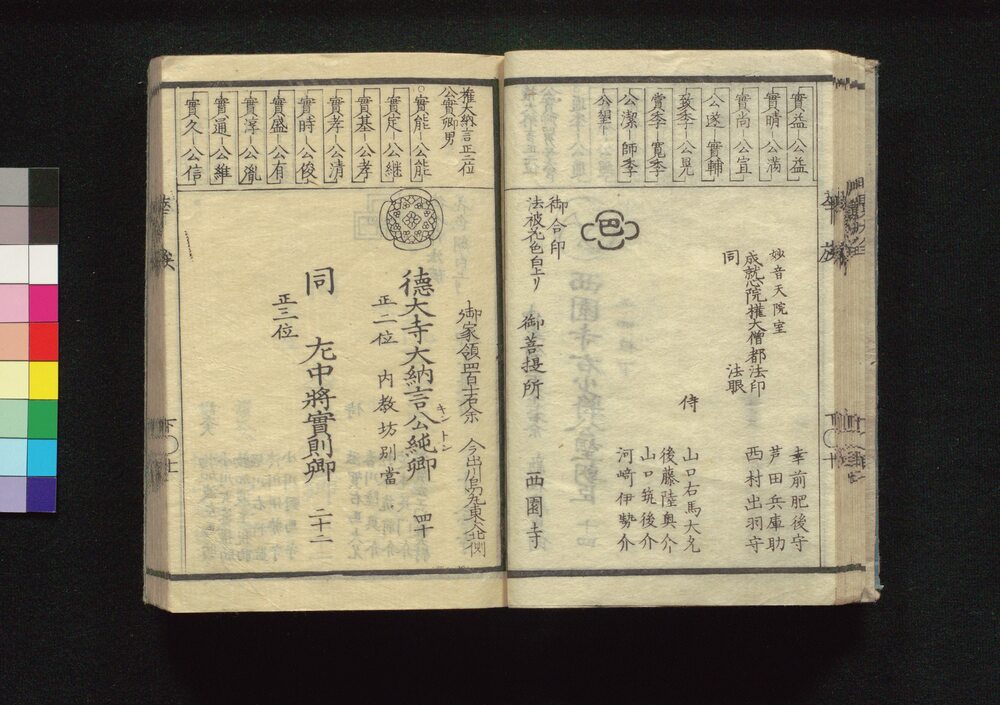 實益―公益
實晴―公満
實尚―公宣
公遂―實輔
致季―公晃
賞季―寛季
公潔―師季
公望
妙音天院室
成就心院權大僧都法印
同 法眼
侍
幸前肥後守
芦田兵庫助
西村出羽守
山口右馬大允
後藤陸奥介
山口筑後介
河﨑伊勢介
巴
御合印
法被花色白上リ
御菩提所
西園寺
權大納言正二位
公實卿男
實能―公能
實定―公継
實基―公孝
實孝―公清
實時―公俊
實盛―公有
實淳―公胤
實通―公維
實久―公信
御家領四百十石余
今出川烏丸東ヘ入北側
德大寺大納言公純卿
キントン
四十
正二位
内教坊別當
同
左中將實則卿
二十二
正三位
華族